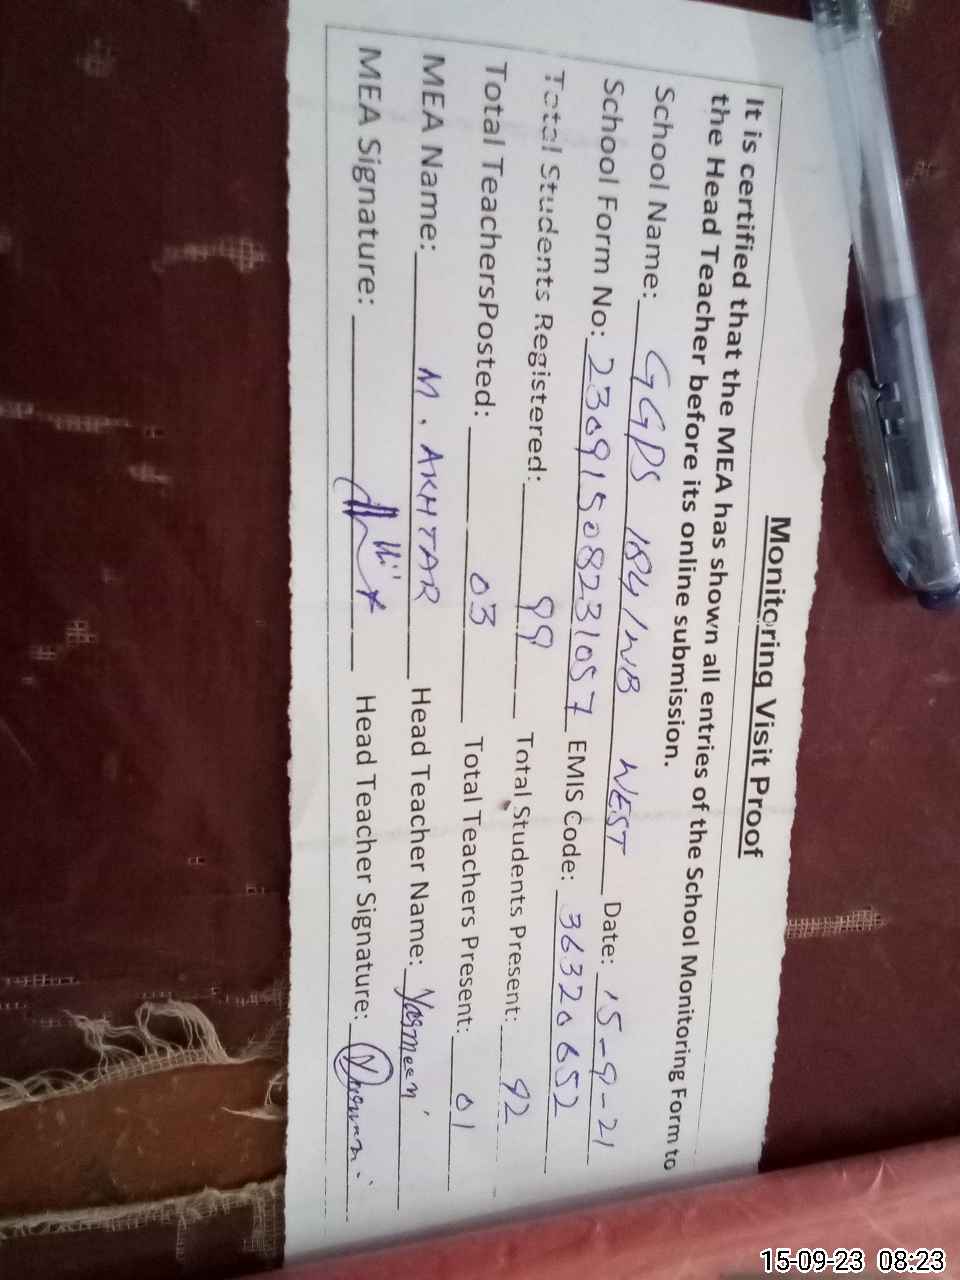 Monitoring Visit Proof
It is certified that the MEA has shown all entries of the School Monitoring Form to
the Head Teacher before its online submission.
School Name: GGPS 184/WB WEST Date: 15-9-21
School Form No: 23091508231057 EMIS Code: 36320652
Total Students Registered: 99 Total Students Present: 92
Total TeachersPosted: 03 Total Teachers Present: 01
MEA Name: M. AKHTAR Head Teacher Name: Yasmeen
MEA Signature: Head Teacher Signature: Yasmeen
15-09-23 08:23